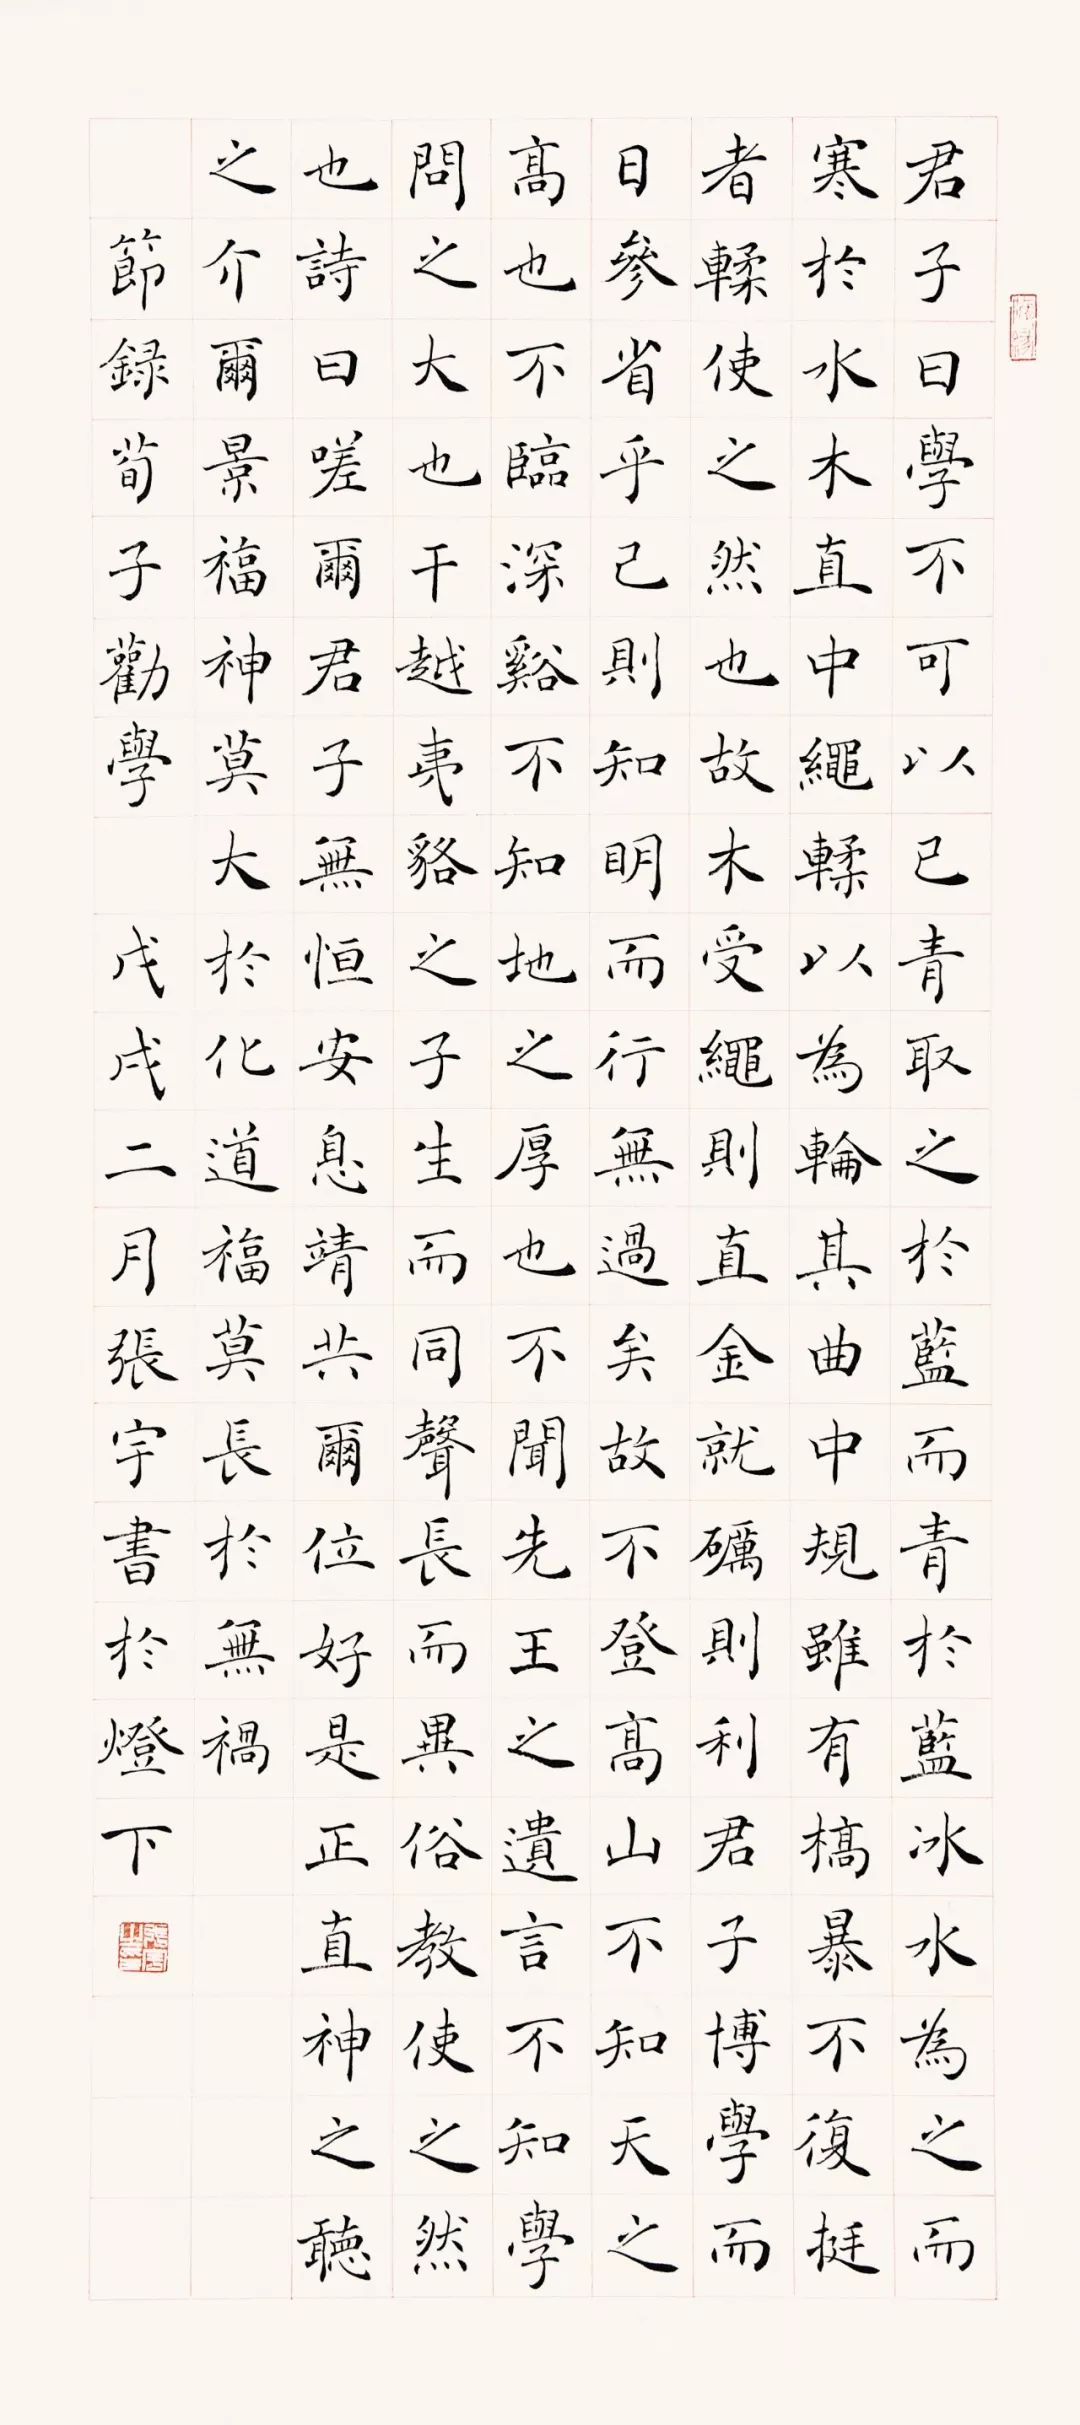 君子曰學不可以已青取之於藍而青於藍冰水為之而
寒於水木直中繩輮以為輪其曲中規雖有槁暴不復挺
者輮使之然也故木受繩則直金就礪則利君子博學而
日參省乎己則知明而行無過矣故不登高山不知天之
高也不臨深谿不知地之厚也不聞先王之遺言不知學
問之大也干越夷貉之子生而同聲長而異俗教使之然
也詩曰嗟爾君子無恒安息靖共爾位好是正直神之聽
之介爾景福神莫大於化道福莫長於無禍
節錄荀子勸學 戊戌二月張宇書於燈下